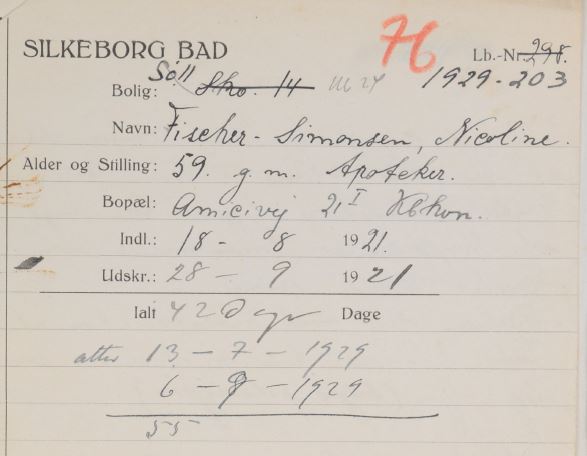 76
SILKEBORG BAD Lb.-Nr. 298.
Söll 1929-203
Bolig: Sko. 14
Navn: Fischer-Simonsen, Nicoline.
Alder og Stilling: 59. g. m. Apoteker.
Bopæl: Amicivej 21 I Kbhvn.
Indl.: 18 - 8 1921.
Udskr.: 28 - 9 1921
Ialt 42 Dage Dage
atter 13 - 7 - 1929
6 - 9 - 1929
55